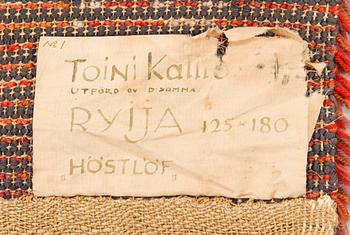 No 1
Toini Kallio
UTFÖRD OV D:SOMMA
RYIJA 125×180
„HÖSTLÖF”